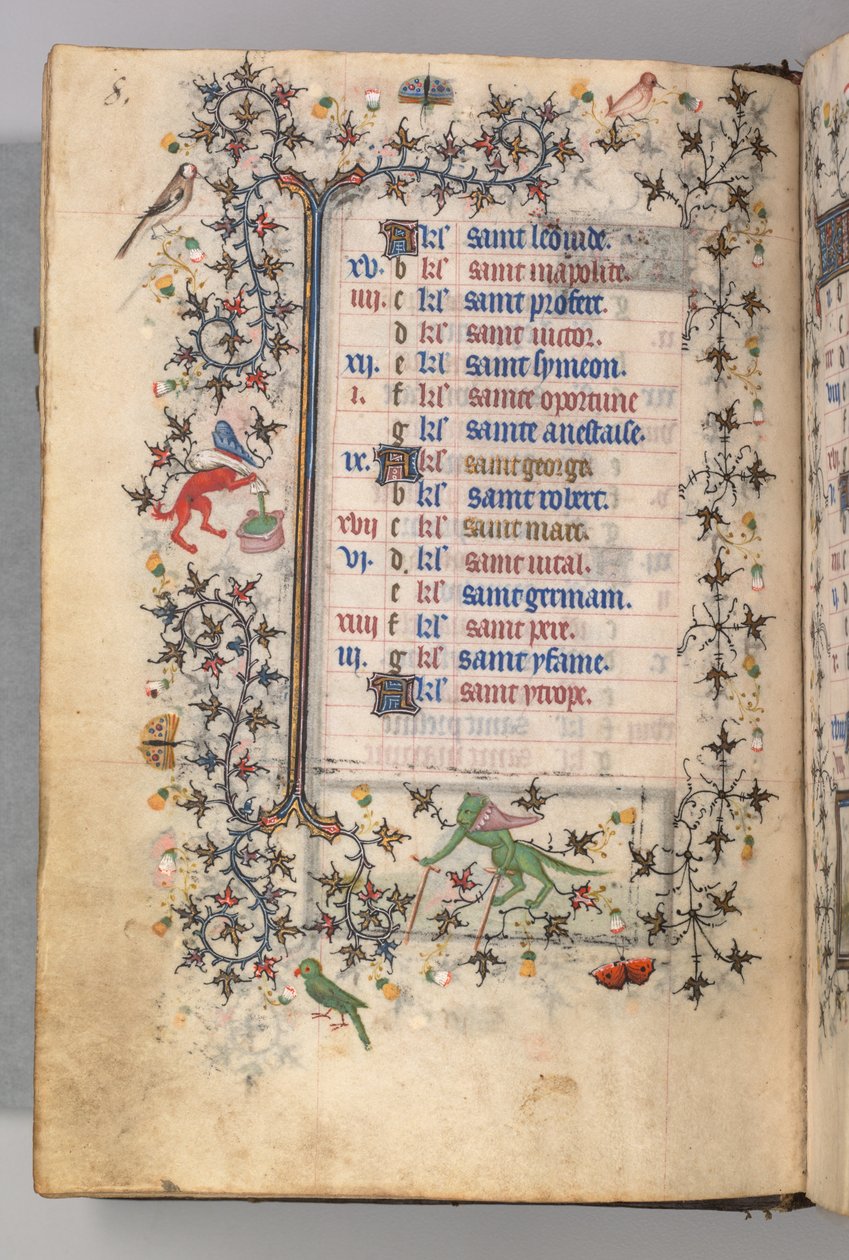 8.
A kl' saint leonide.
xv. b kl' saint mapolite.
iiii. c kl' saint profect.
d kl' saint victor.
xii. e kl' saint symeon.
i. f kl' sainte oportune
g kl' sainte anestaise.
ix. A kl' saint george.
b kl' saint robert.
xvii c kl' saint marc.
vi. d. kl' saint vital.
e kl' saint germain.
xiiii f kl' saint pere.
iii. g kl' saint ysaine.
A kl' saint ytrope.